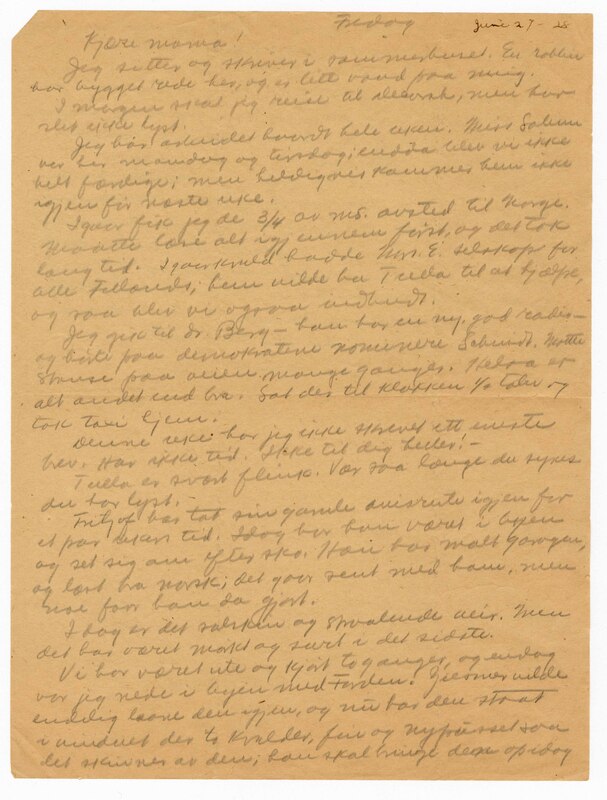 Fredag June 27 - 28
Kjære mama!
Jeg sitter og skriver i sommerhuset. En robbin
har bygget rede her, og er litt vond paa mig.
I morgen skal jeg reise til Decorah, men har
slet ikke lyst.
Jeg har arbeidet haardt hele uken. Miss
var her mandag og tirsdag; endda blev vi ikke
helt færdige; men heldigvis kommer hun ikke
igjen för næste uke.
Igaar fik jeg de 3/4 av ms. avsted til Norge.
Maatte læse alt igjennem först, og det tok
lang tid. Igaarkveld hadde Mrs. E. selskap for
alle; hun vilde ha Tulla til at hjælpe,
og saa blev vi ogsaa indbudt.
Jeg gik til dr. Berg - han har en ny, god radio -
og hörte paa demokratene nominere Schmidt. Maatte
paa veien mange ganger. Helsa er
alt andet end bra. Sat der til klokken 1/2 tolv og
tok taxi hjem.
Denne uke har jeg ikke skrevet ett eneste
brev. Har ikke tid. Ikke til dig heller! -
Tulla er svært flink. Vær saa længe du synes
du har lyst.
Fritjof har tat sin gamle avisrute igjen for
et par ukers tid. Idag har han været i byen
og set sig om efter sko. Han har malt garagen,
og læst bra norsk; det gaar sent med ham, men
noe faar han da gjort.
I dag er det solskin og straalende veir. Men
det har været morkt og surt i det sidste.
Vi har været ute og kjört to ganger, og endog
var jeg nede i byen med Forden. vilde
endelig laane den igjen, og nu har den staat
i vinduet der to kvelder, fin og nypusset saa
det skinner av den; han skal bringe den op idag